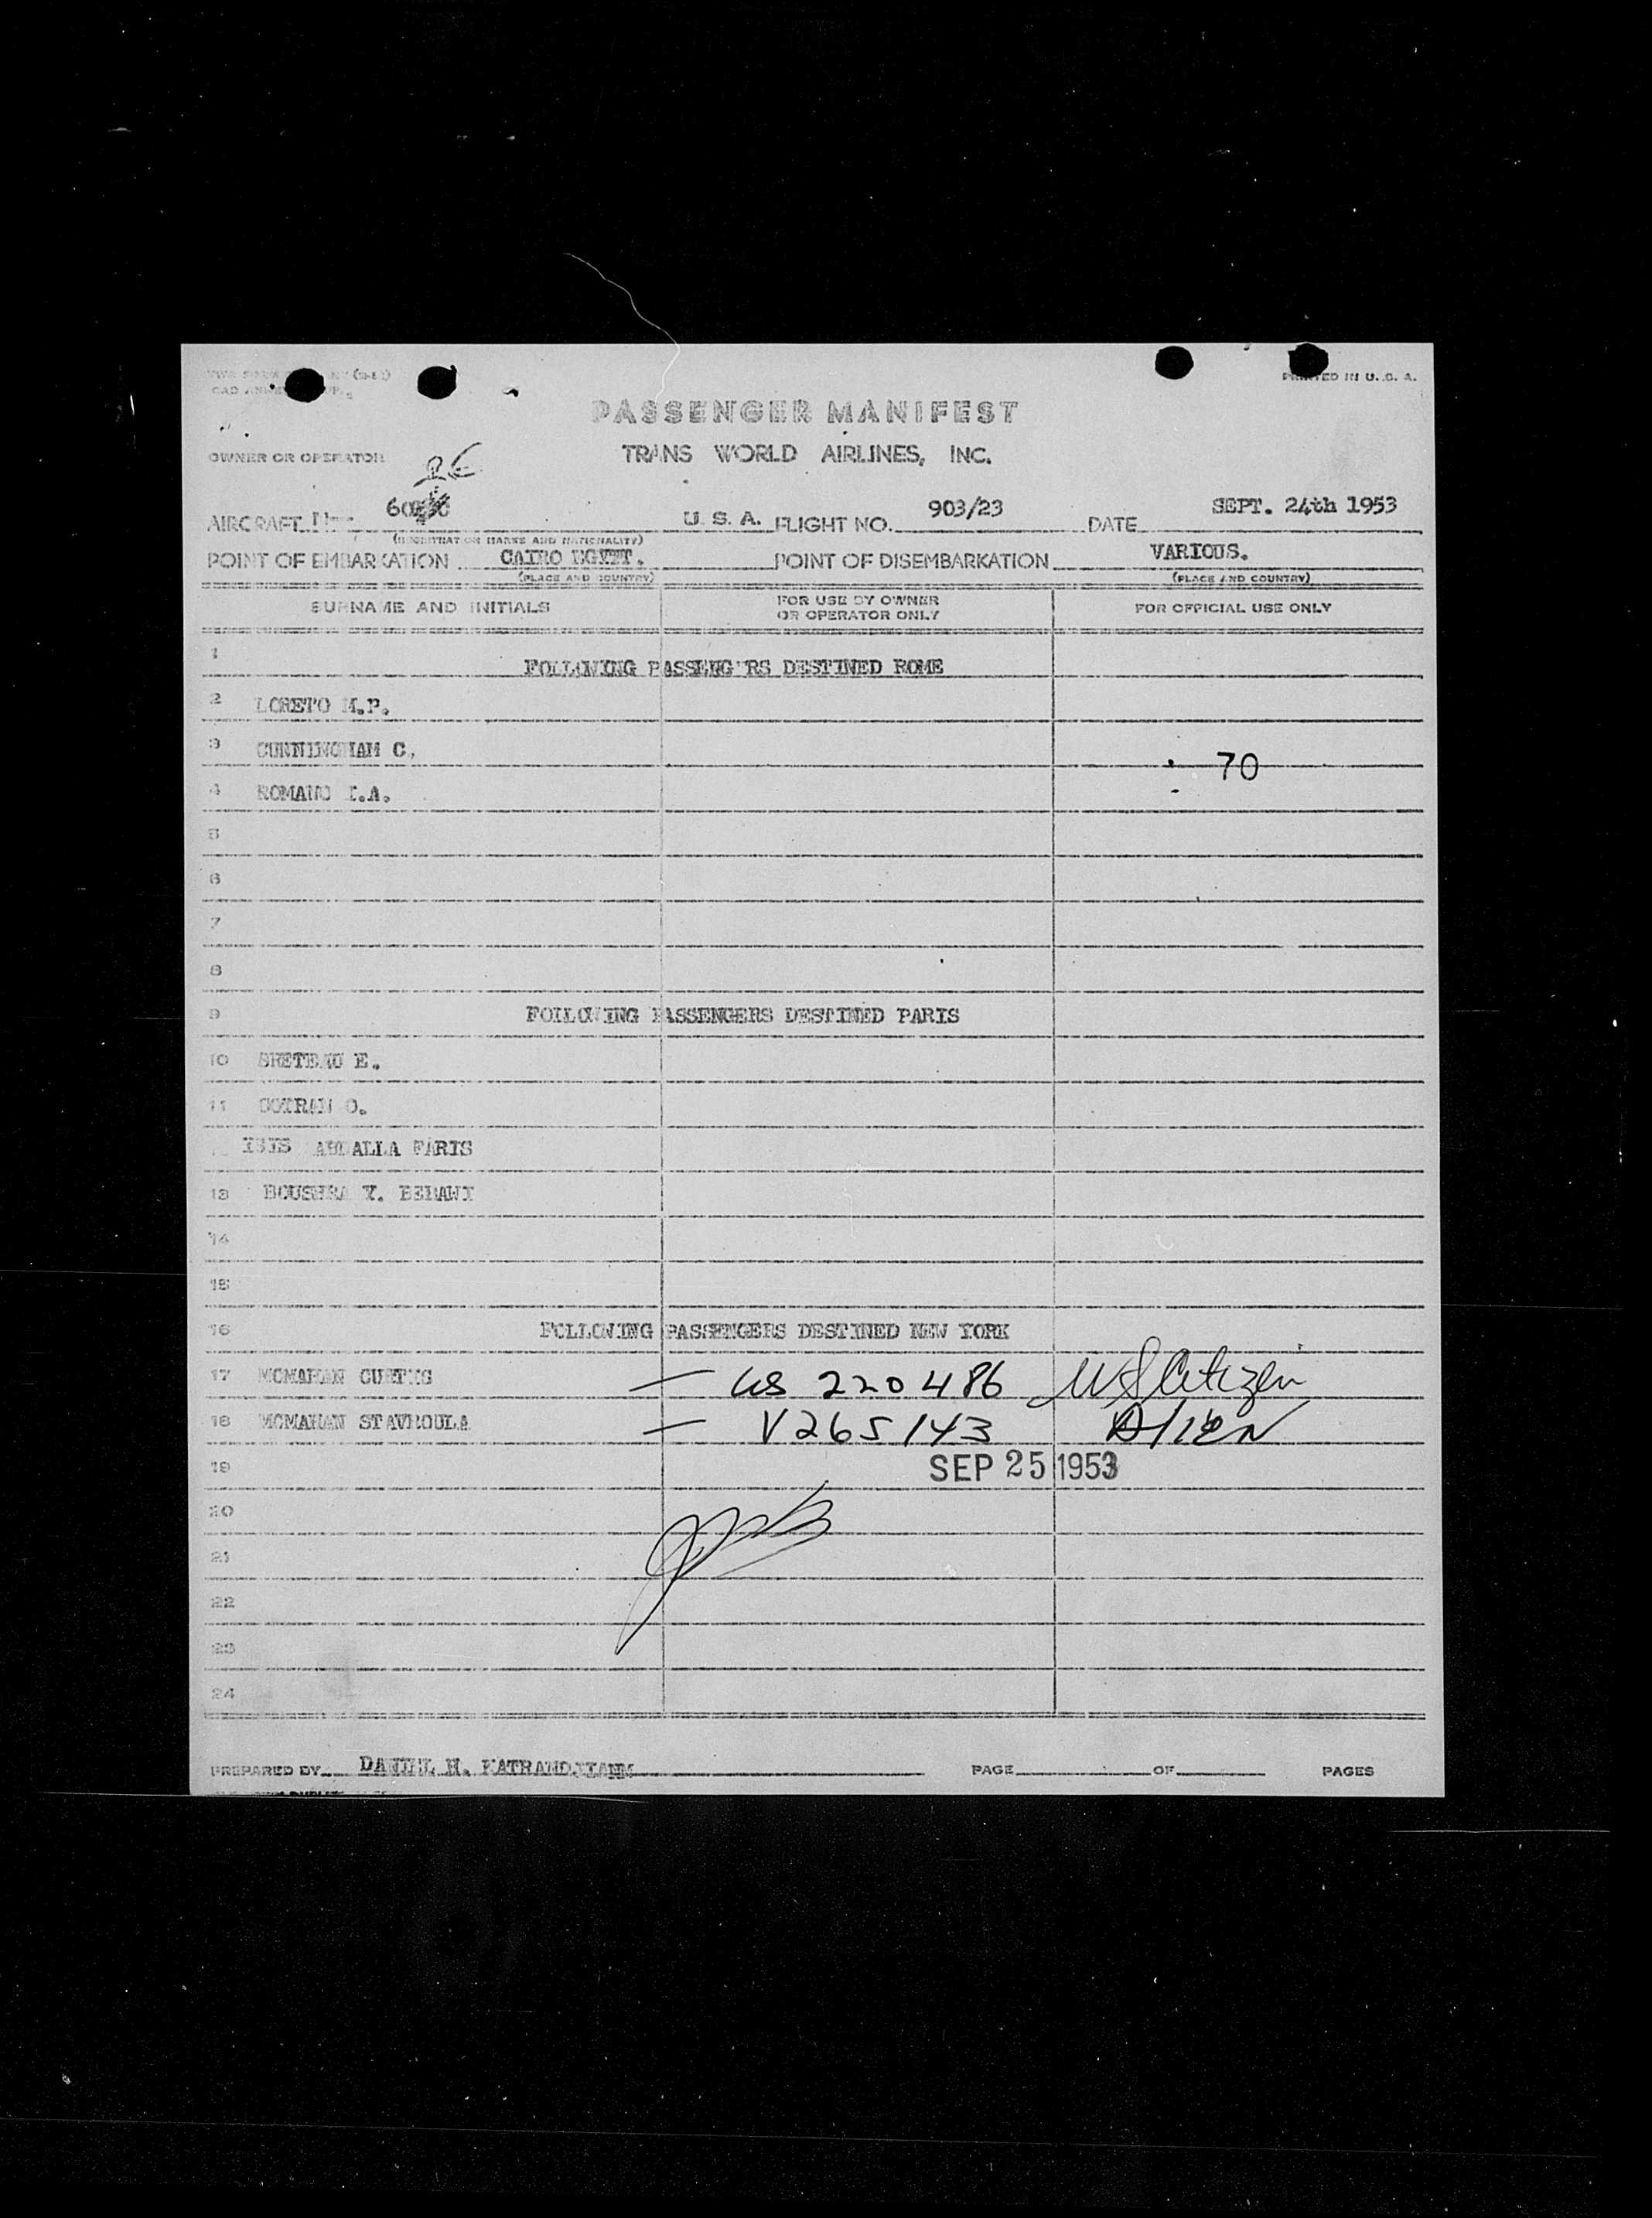 PRINTED IN U. S. A.
PASSENGER MANIFEST
OWNER OR OPERATOR TRANS WORLD AIRLINES, INC.
26
AIRCRAFT U. S. A. FLIGHT NO. 903/23 DATE SEPT. 24th 1953
(REGISTRATION MARKS AND NATIONALITY)
POINT OF EMBARKATION CAIRO EGYPT. POINT OF DISEMBARKATION VARIOUS.
(PLACE AND COUNTRY) (PLACE AND COUNTRY)
SURNAME AND INITIALS FOR USE BY OWNER OR OPERATOR ONLY FOR OFFICIAL USE ONLY
1 FOLLOWING PASSENGERS DESTINED ROME
2 LORETO M.P.
3 CUNNINGHAM C.
70
4 ROMANO I.A.
5
6
7
8
9 FOLLOWING PASSENGERS DESTINED PARIS
10 E.
11 COTRAN O.
ISIS ABDALLA FARIS
13 BOUSHRA Y.
14
15
16 FOLLOWING PASSENGERS DESTINED NEW YORK
17 MCMAHAN CURTIS — US 220486 US Citizen
18 MCMAHAN STAVROULA — V265143 Alien
19 SEP 25 1953
20
21
22
23
24
PREPARED BY DANIEL H. PAGE OF PAGES